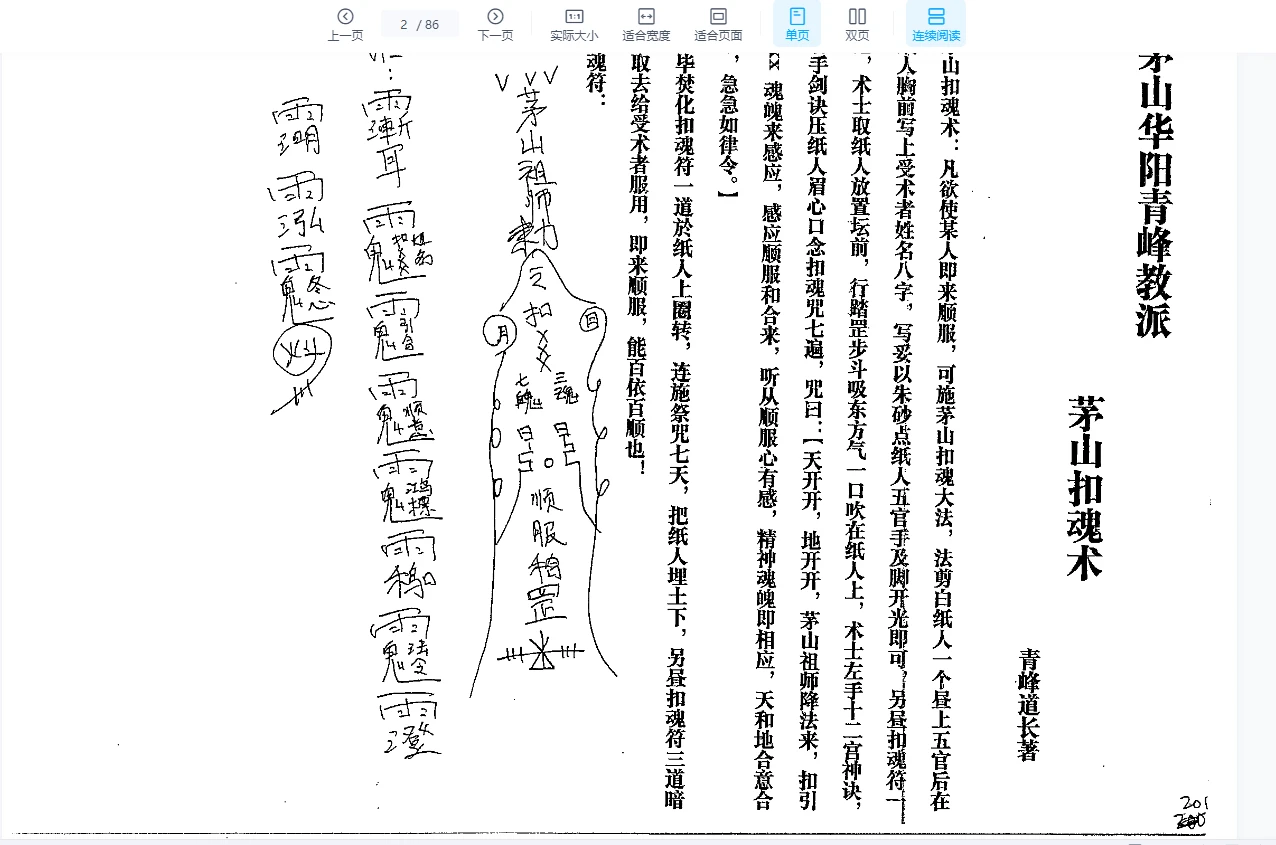 上一页
2 / 86
下一页
实际大小
适合宽度
适合页面
单页
双页
连续阅读
茅山华阳青峰教派
茅山扣魂术
青峰道长著
山扣魂术：凡欲使某人即来顺服，可施茅山扣魂大法，法剪白纸人一个昼上五官后在
人胸前写上受术者姓名八字，写妥以朱砂点纸人五官手及脚开光即可，另昼扣魂符一
，术士取纸人放置坛前，行踏罡步斗吸东方气一口吹在纸人上，术士左手十二宫神诀，
手剑诀压纸人眉心口念扣魂咒七遍，咒曰：【天开开，地开开，茅山祖师降法来，扣引
魂魄来感应，感应顺服和合来，听从顺服心有感，精神魂魄即相应，天和地合意合
，急急如律令。】
毕焚化扣魂符一道於纸人上圈转，连施祭咒七天，把纸人埋土下，另昼扣魂符三道暗
取去给受术者服用，即来顺服，能百依百顺也！
魂符：
茅山祖师
扣
日
月
三魂
七魄
顺服
罡
201